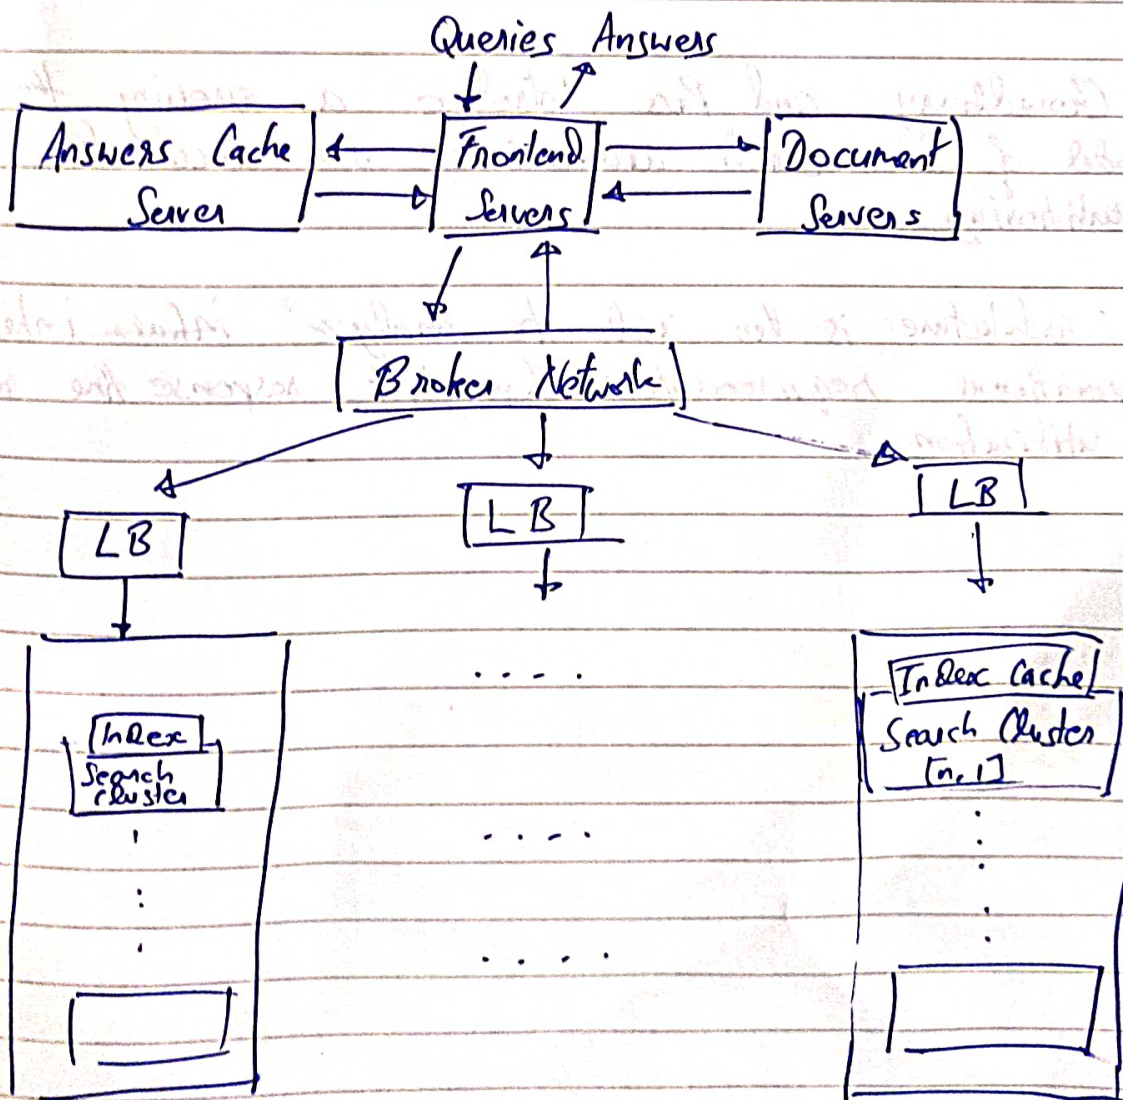 Queries Answers
Answers Cache
Server
Frontend
Servers
Document
Servers
Broker Network
LB
LB
LB
Index
Search
Cluster
Index Cache
Search Cluster
[n, 1]